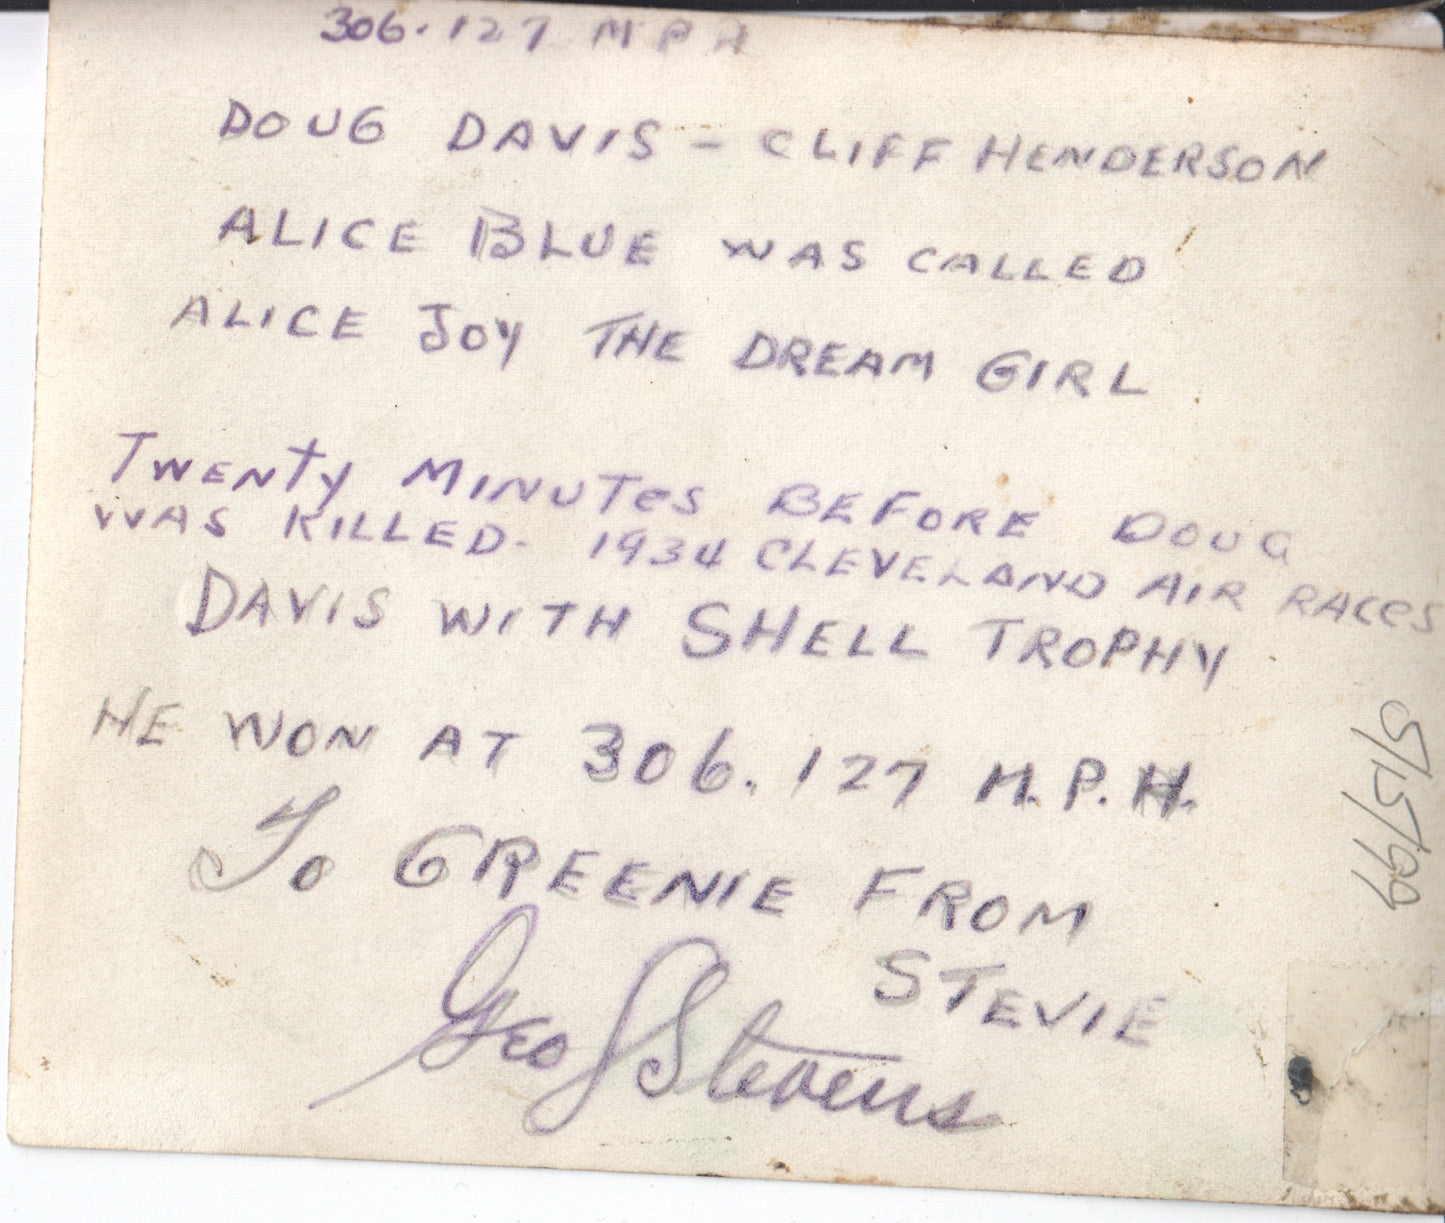 306.127 MPH
DOUG DAVIS - CLIFF HENDERSON
ALICE BLUE WAS CALLED
ALICE JOY THE DREAM GIRL
TWENTY MINUTES BEFORE DOUG
WAS KILLED - 1934 CLEVELAND AIR RACES
DAVIS WITH SHELL TROPHY
HE WON AT 306.127 M.P.H.
To GREENIE FROM
STEVIE
Geo J Stevens
5/15/99